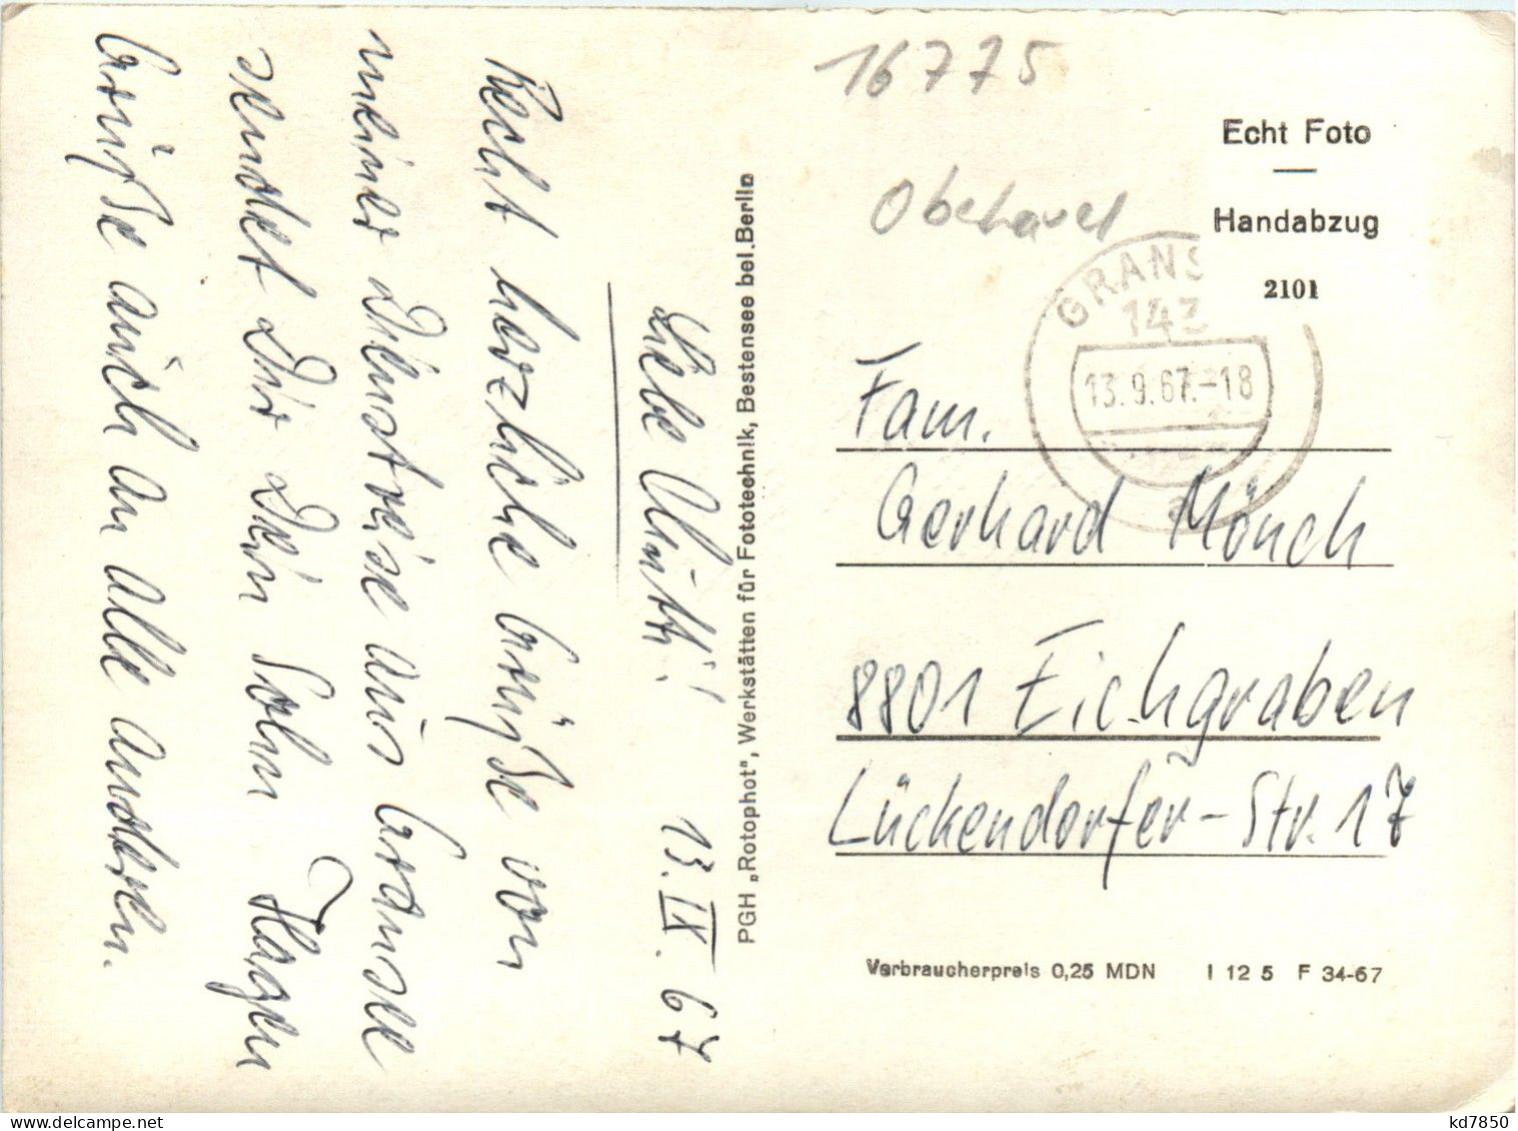 Liebe Mutti! 13. IX. 67
Recht herzliche Grüße von
meiner Dienstreise aus Gransee
sendet Dir Dein Sohn Hagen
Grüße auch an alle anderen.
PGH „Rotophot", Werkstätten für Fototechnik, Bestensee bei.Berlin
16775
Obehavel
Echt Foto
Handabzug
2101
GRANS
143
13.9.67.-18
a
Fam.
Gerhard Mönch
8801 Eichgraben
Lückendorfer-Str. 17
Verbraucherpreis 0,25 MDN I 12 5 F 34-67
kd7850